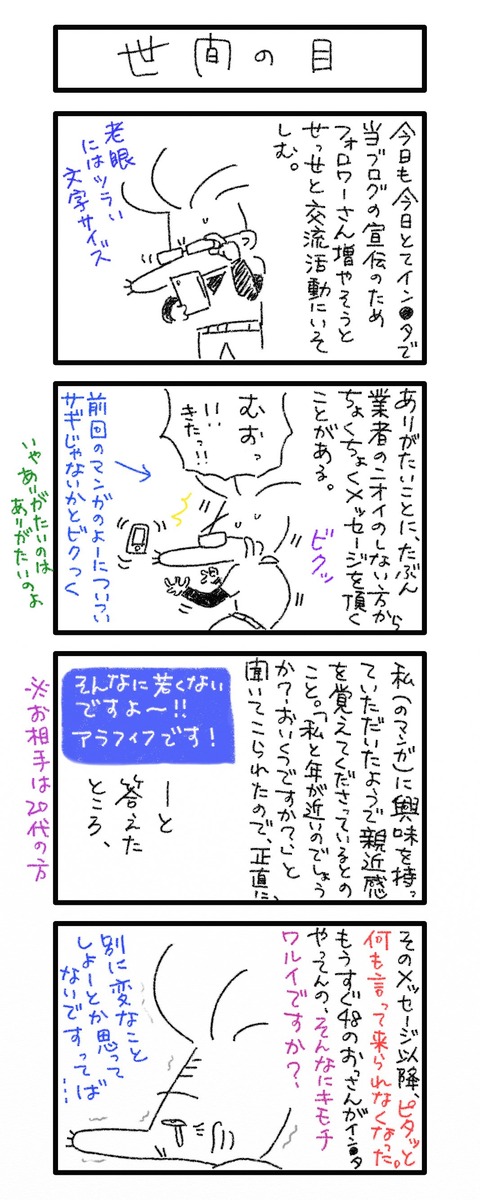 世間の目
今日も今日とてイン●タで
当ブログの宣伝のため
フォロワーさん増やそうと
せっせと交流活動にいそ
しむ。
老眼
にはツラい
文字サイズ
ありがたいことに、たぶん
業者のニオイのしない方から
ちょくちょくメッセージを頂く
ことがある。
むおっ
いい
きたっ!!
ビクッ
汚
前回のマンガのよーについつい
サギじゃないかとビクつく
いや ありがたいのは
ありがたいのよ
私(のマンガ)に興味を持っ
ていただいたようで親近感
を覚えてくださっているとの
こと。「私と年が近いのでしょう
か?おいくつですか?」と
聞いてこられたので、正直に、
そんなに若くない
ですよ〜!!
アラフィフです!
ーと
答えた
ところ、
※お相手は20代の方
そのメッセージ以降、ピタッと
何も言って来られなくなった。
もうすぐ48のおっさんがイン●タ
やってんの、そんなにキモチ
ワルイですか?
別に変なこと
しよーとか思って
ないですってば
……